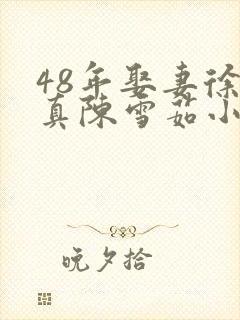 48年娶妻徐
真陈雪茹小
晚夕拾